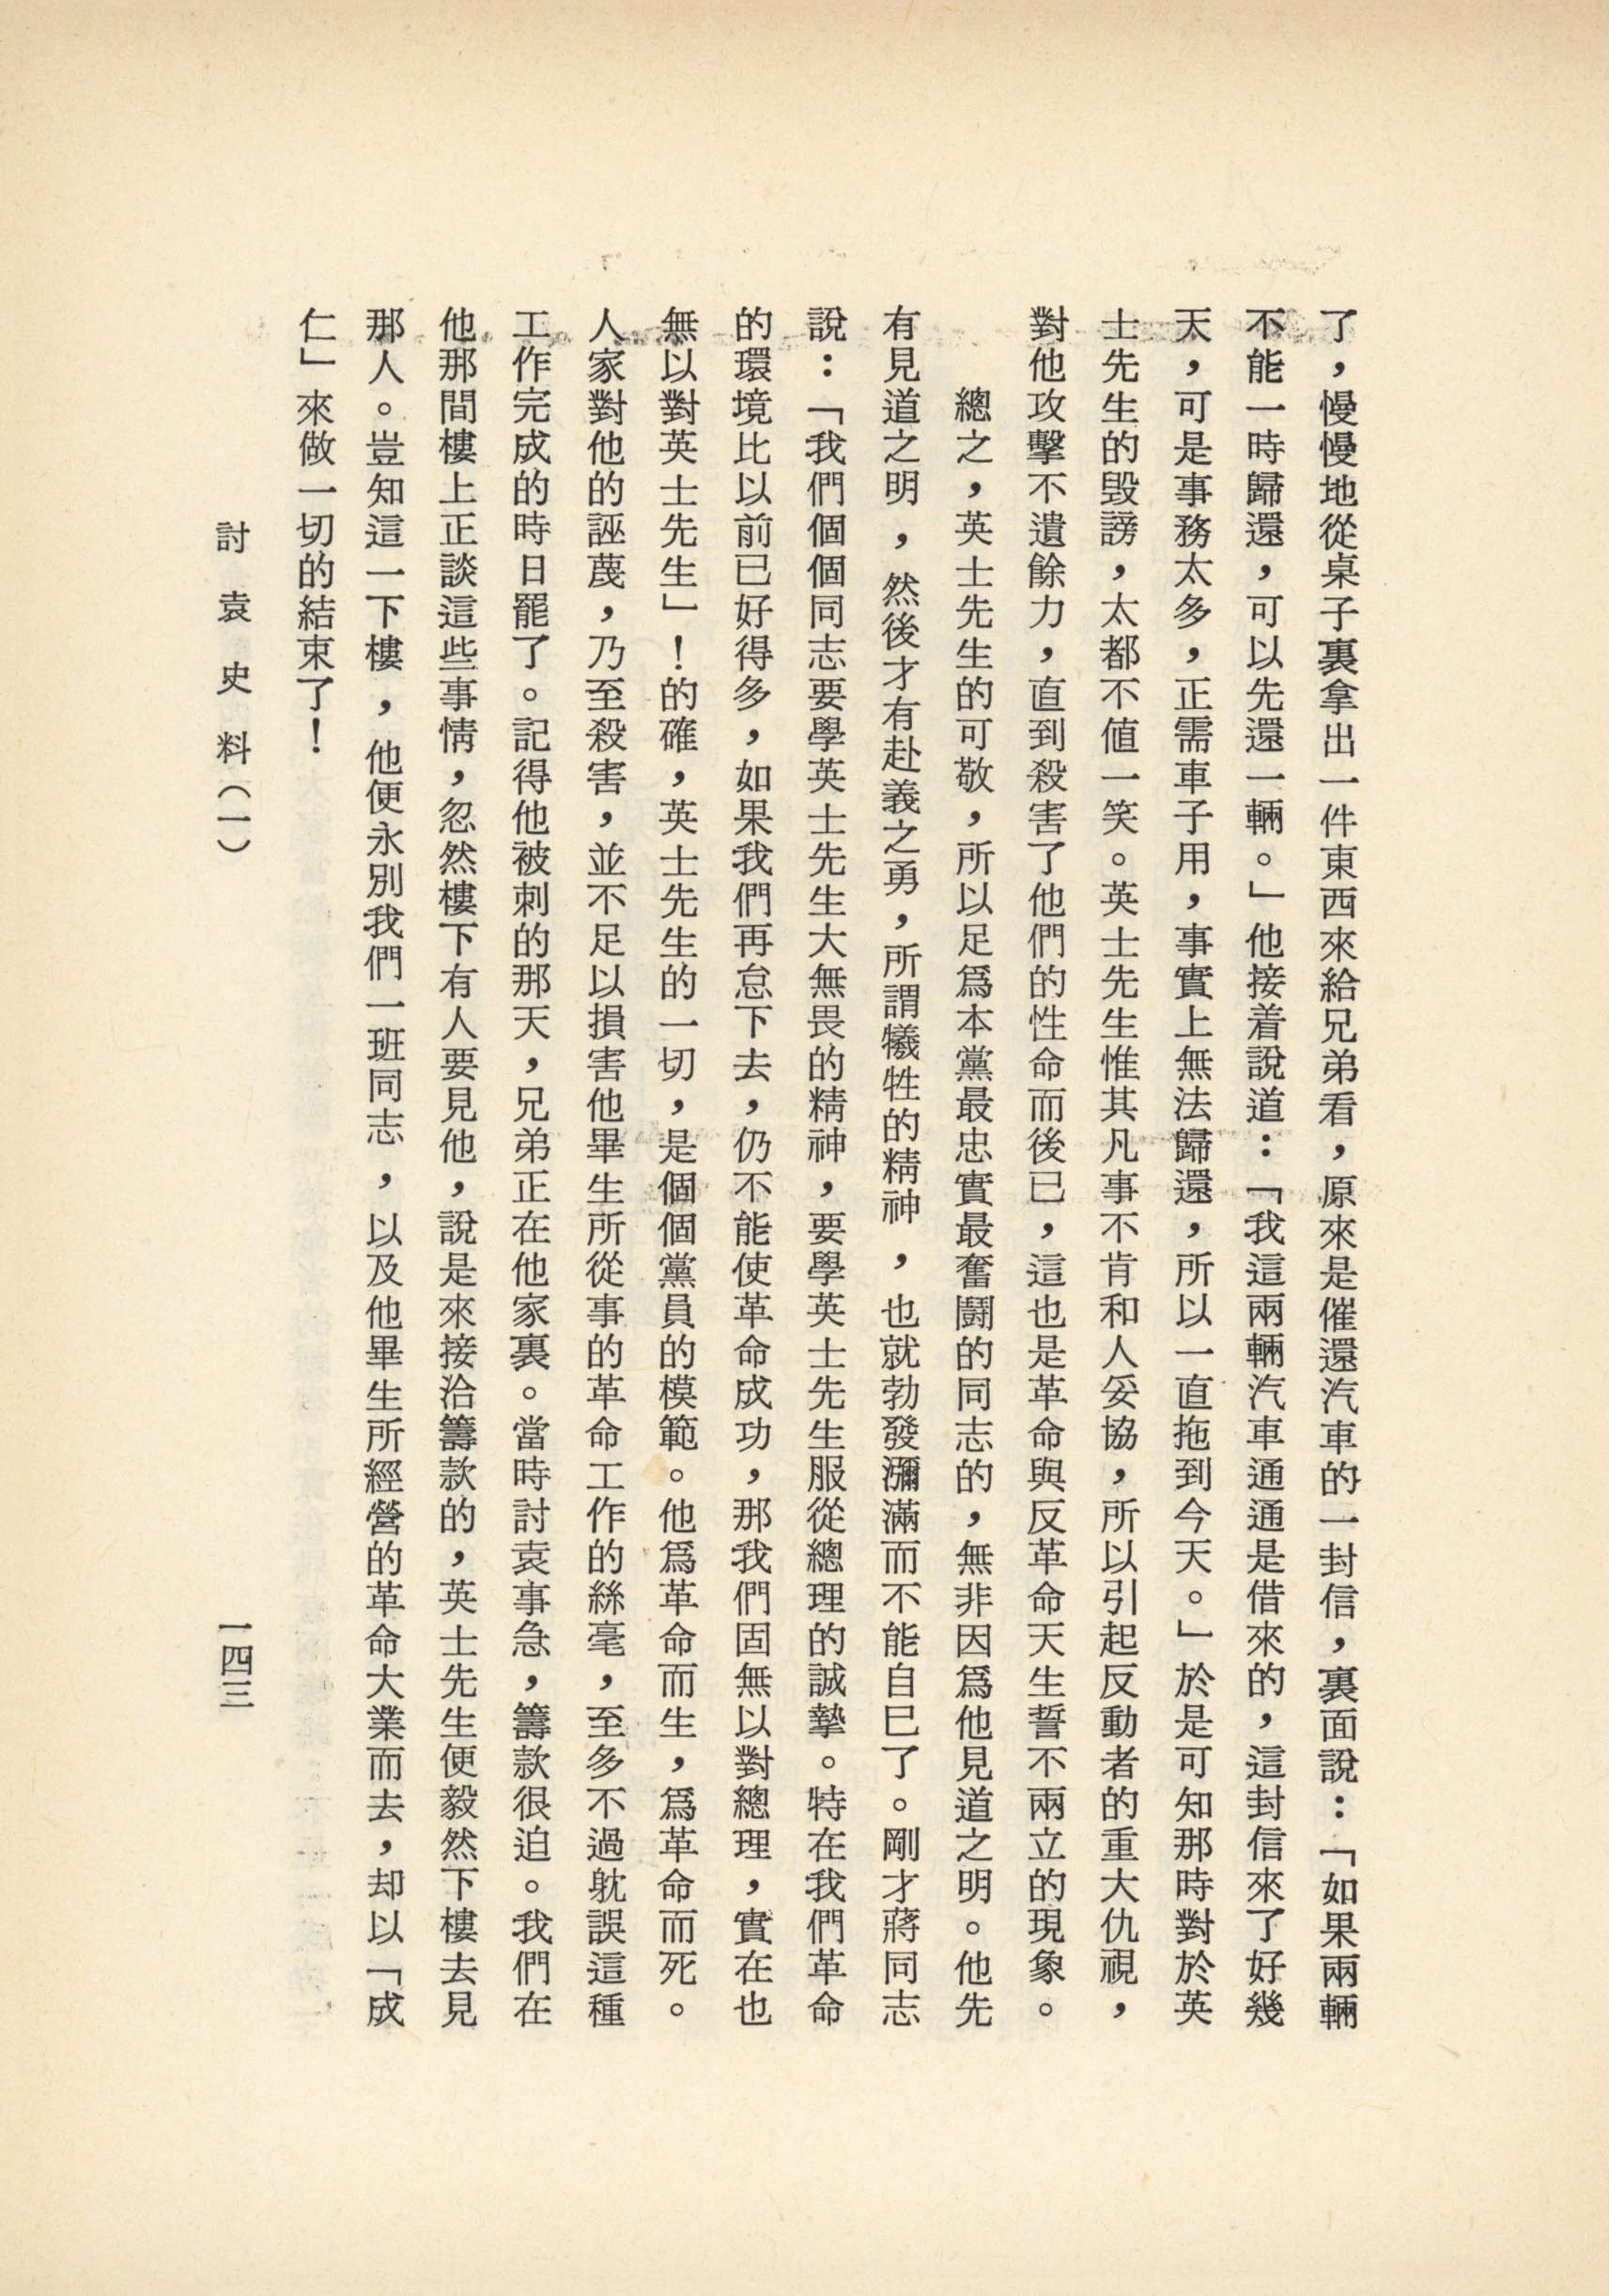 了，慢慢地從桌子裏拿出一件東西來給兄弟看，原來是催還汽車的一封信，裏面說：「如果兩輛
不能一時歸還，可以先還一輛。」他接着說道：「我這兩輛汽車通通是借來的，這封信來了好幾
天，可是事務太多，正需車子用，事實上無法歸還，所以一直拖到今天。」於是可知那時對於英
士先生的毀謗，太都不值一笑。英士先生惟其凡事不肯和人妥協，所以引起反動者的重大仇視，
對他攻擊不遺餘力，直到殺害了他們的性命而後已，這也是革命與反革命天生誓不兩立的現象。
總之，英士先生的可敬，所以足爲本黨最忠實最奮鬪的同志的，無非因爲他見道之明。他先
有見道之明，然後才有赴義之勇，所謂犧牲的精神，也就勃發瀰滿而不能自已了。剛才蔣同志
說：「我們個個同志要學英士先生大無畏的精神，要學英士先生服從總理的誠摯。特在我們革命
的環境比以前已好得多，如果我們再怠下去，仍不能使革命成功，那我們固無以對總理，實在也
無以對英士先生」！的確，英士先生的一切，是個個黨員的模範。他爲革命而生，爲革命而死。
人家對他的誣蔑，乃至殺害，並不足以損害他畢生所從事的革命工作的絲毫，至多不過躭誤這種
工作完成的時日罷了。記得他被刺的那天，兄弟正在他家裏。當時討袁事急，籌款很迫。我們在
他那間樓上正談這些事情，忽然樓下有人要見他，說是來接洽籌款的，英士先生便毅然下樓去見
那人。豈知這一下樓，他便永別我們一班同志，以及他畢生所經營的革命大業而去，却以「成
仁」來做一切的結束了！
討袁史料（一）
一四三